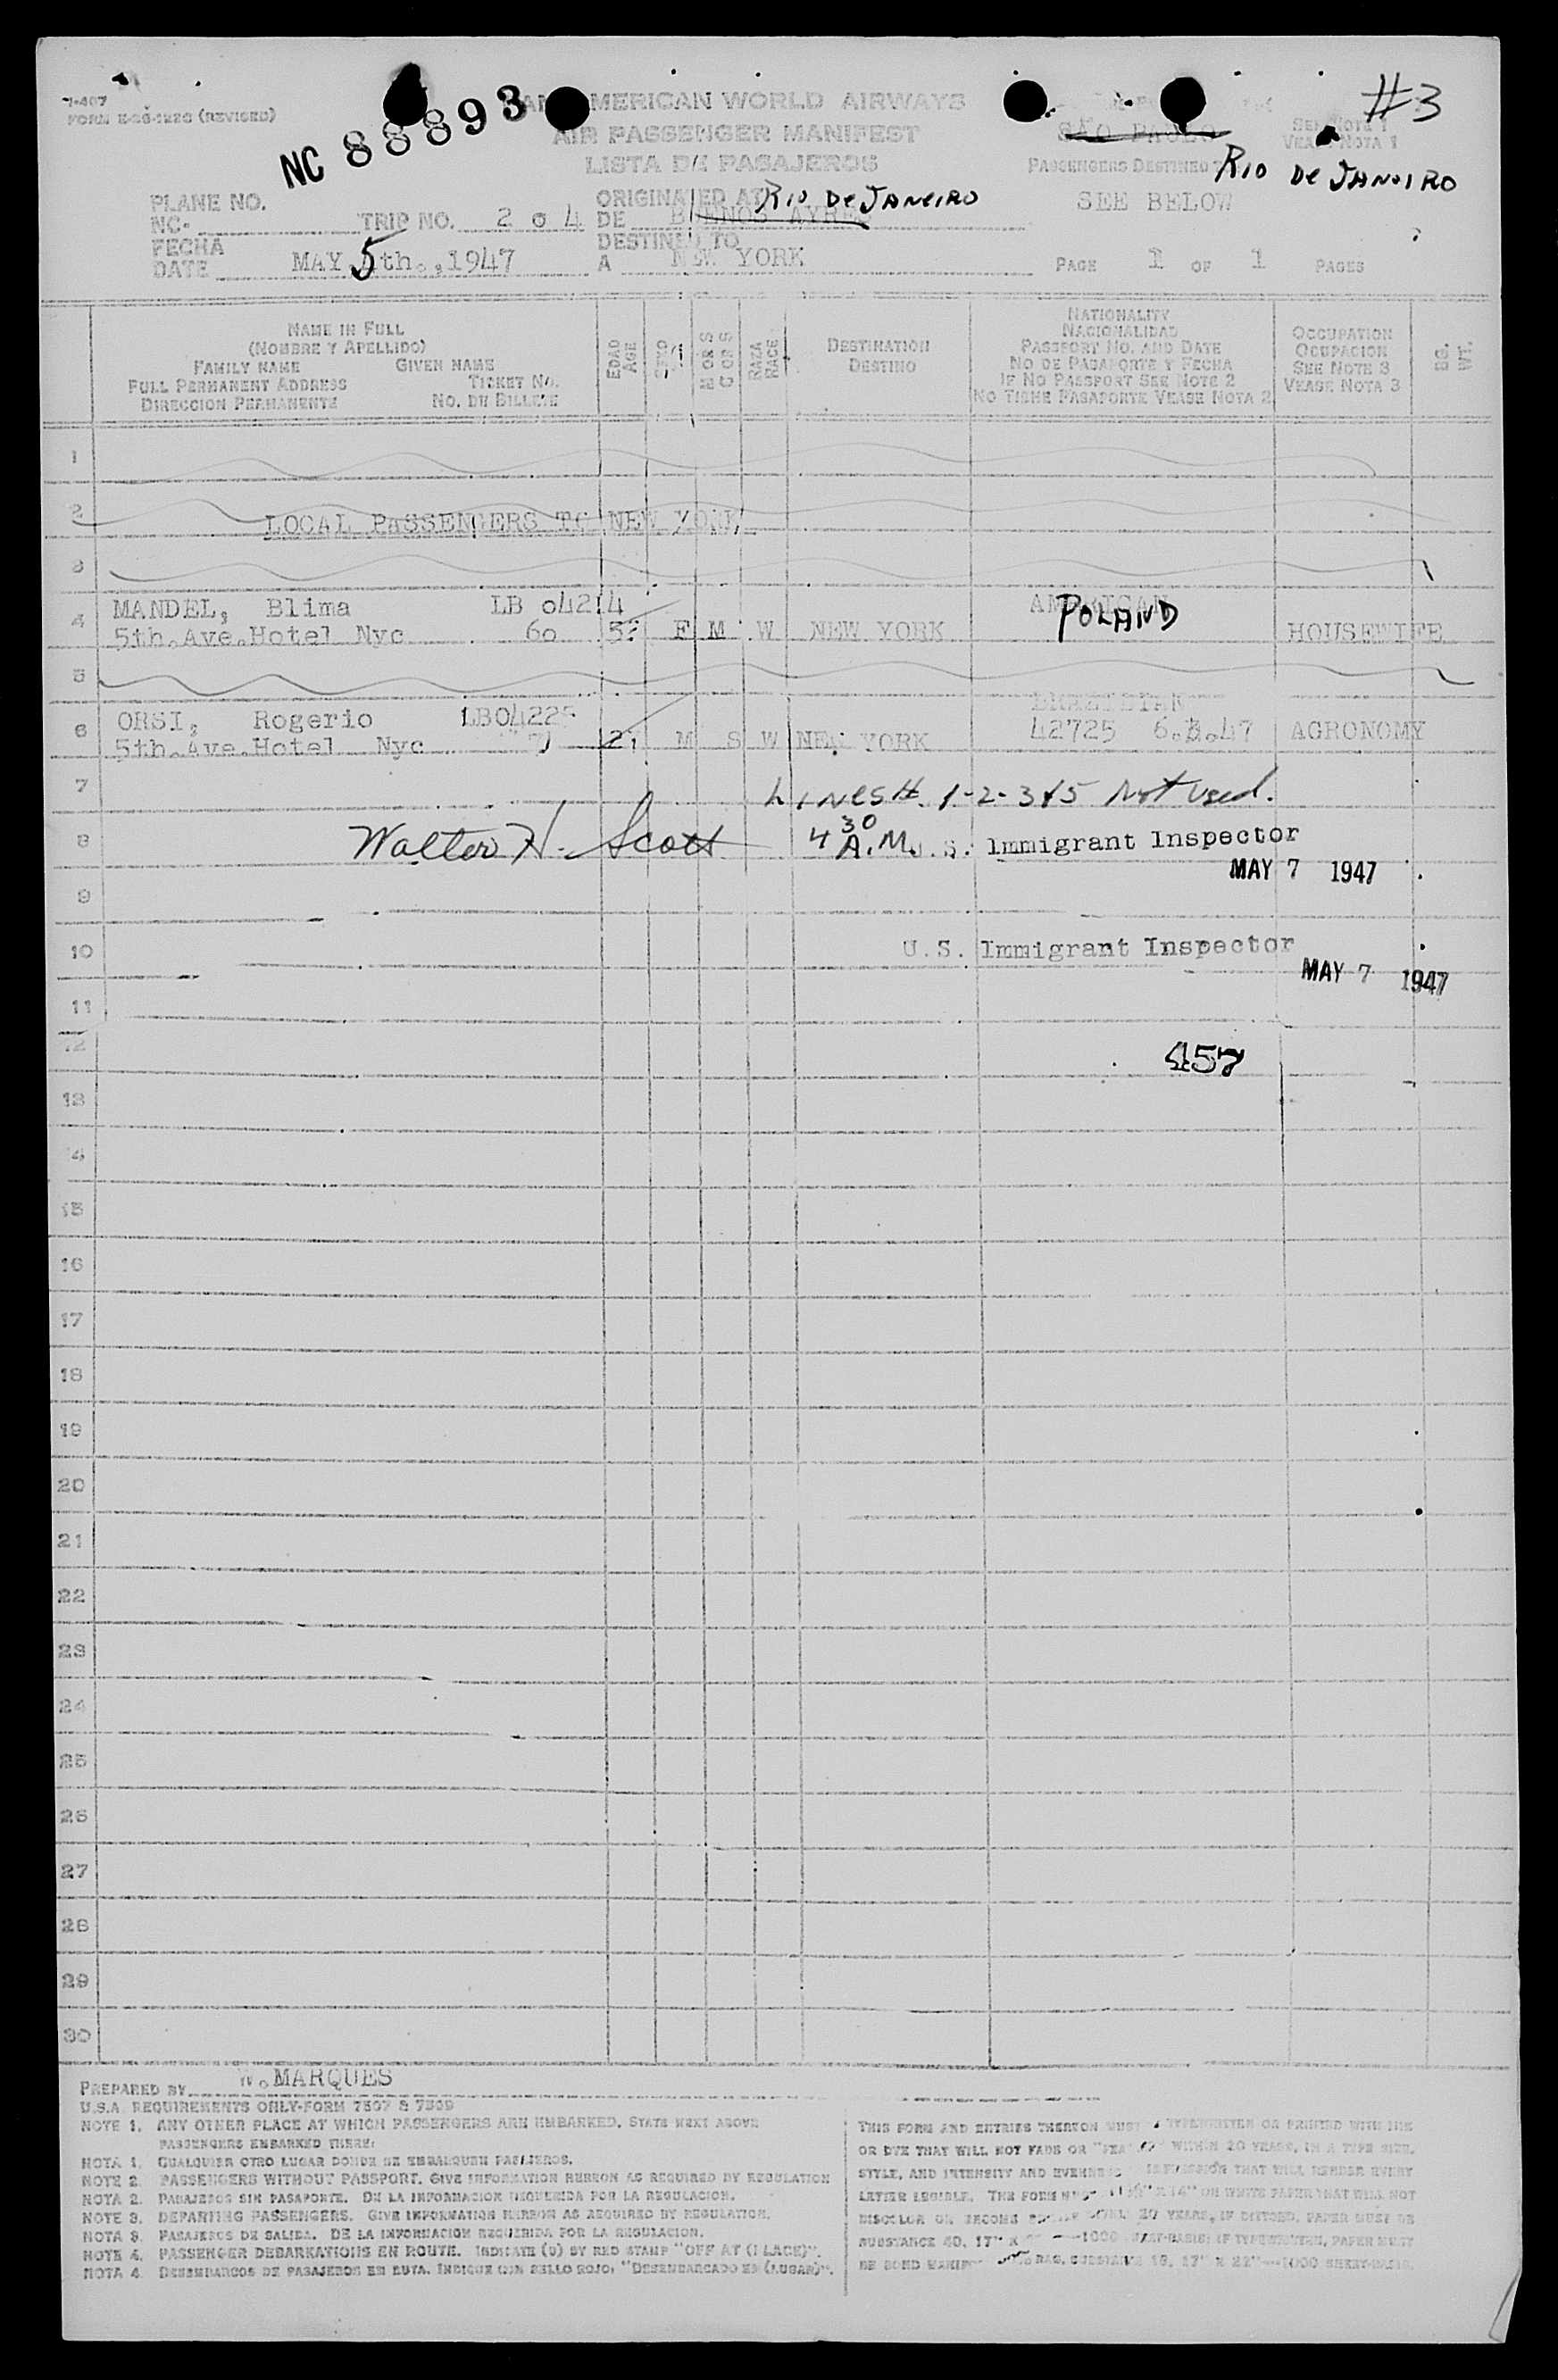 I-407
FORM (REVISED)
NC 88893
AMERICAN WORLD AIRWAYS
#3
AIR PASSENGER MANIFEST
SÃO PAULO
SEE NOTE 1
LISTA DE PASAJEROS
VEASE NOTA 1
PASSENGERS DESTINED
RIO De JANEIRO
PLANE NO.
NC-
TRIP NO. 204
ORIGINATED AT
RIO De JANEIRO
DE BUENOS AYRES
SEE BELOW
FECHA
DATE MAY 5th.,1947
DESTINED TO
A NEW YORK
PAGE 1 OF 1 PAGES
NAME IN FULL
(NOMBRE Y APELLIDO)
FAMILY NAME GIVEN NAME
FULL PERMANENT ADDRESS TICKET NO.
DIRECCION PERMANENTE NO. DE BILLETE
EDAD
AGE
SEXO
M OR S
C OR S
RAZA
RACE
DESTINATION
DESTINO
NATIONALITY
NACIONALIDAD
PASSPORT NO. AND DATE
NO DE PASAPORTE Y FECHA
IF NO PASSPORT SEE NOTE 2
NO TIENE PASAPORTE VEASE NOTA 2
OCCUPATION
OCUPACION
SEE NOTE 3
VEASE NOTA 3
BG.
WT.
1
2 LOCAL PASSENGERS TO NEW YORK
3
MANDEL, Blima LB 04214 AMERICAN
4 5th.Ave.Hotel Nyc 60 F M W NEW YORK POLAND HOUSEWIFE
5
ORSI, Rogerio BRAZILIAN
6 5th.Ave.Hotel Nyc 21 M S W NEW YORK 42725 AGRONOMY
7 LINES #. 1-2-3 & 5 Not Used.
8 Walter H. Scott 4 30 A.M. U.S. Immigrant Inspector
MAY 7 1947
9
10 U.S. Immigrant Inspector
MAY 7 1947
11
12 457
13
14
15
16
17
18
19
20
21
22
23
24
25
26
27
28
29
30
PREPARED BY MARQUES
U.S.A. REQUIREMENTS ONLY-FORM 7507 & 7509
NOTE 1. ANY OTHER PLACE AT WHICH PASSENGERS ARE EMBARKED, STATE NEXT ABOVE
PASSENGERS EMBARKED THERE:
NOTA 1. CUALQUIER OTRO LUGAR DONDE SE EMBARQUEN PASAJEROS.
NOTE 2. PASSENGERS WITHOUT PASSPORT. GIVE INFORMATION HEREON AS REQUIRED BY REGULATION
NOTA 2. PASAJEROS SIN PASAPORTE. DE LA INFORMACION REQUERIDA POR LA REGULACION.
NOTE 3. DEPARTING PASSENGERS. GIVE INFORMATION HEREON AS REQUIRED BY REGULATION.
NOTA 3. PASAJEROS DE SALIDA. DE LA INFORMACION REQUERIDA POR LA REGULACION.
NOTE 4. PASSENGER DEBARKATIONS EN ROUTE. INDICATE (O) BY RED STAMP "OFF AT (PLACE)".
NOTA 4. DESEMBARCOS DE PASAJEROS EN RUTA. INDIQUE CON SELLO ROJO, "DESEMBARCADO EN (LUGAR)".
THIS FORM AND ENTRIES THEREON MUST TYPEWRITTEN OR PRINTED WITH INK
OR DYE THAT WILL NOT FADE OR WITHIN 20 YEARS, IN A TYPE SIZE,
STYLE, AND INTENSITY AND EVENNESS IMPRESSION THAT WILL RENDER EVERY
LETTER LEGIBLE. THE FORM ON WHITE PAPER THAT WILL NOT
DISCOLOR OR BECOME 20 YEARS, IF DITTOED, PAPER MUST BE
SUBSTANCE 40, 17" X 1000 SHEET-BASIS; IF TYPEWRITTEN, PAPER MUST
BE BOND RAG, SUBSTANCE 16, 17" X 22"—1000 SHEET-BASIS.